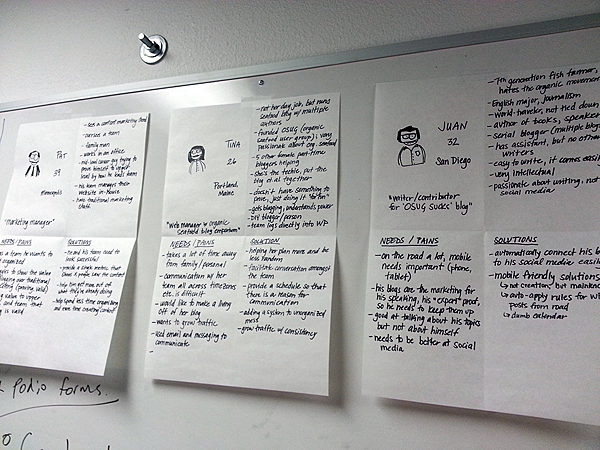 - sees a content marketing
- carries a team
- family man
- works in an office
- mid-level career guy trying to
prove himself to
used by how kids
- his team manages their
website in-house
- have traditional marketing
staff
PAT
39
Minneapolis
"Marketing manager"
NEEDS/PAINS
team wants to
organized
to show the value
over traditional
(proving valid)
value to upper
and team that
is valid
SOLUTIONS
- he and his team need to
look successful
- provide a single metrics that
shows & people love the content
- help him get more out of
what they're already doing
- help spend less time organizing
and more time creating content
- not her day job, but runs
seafood blog w/ multiple
authors
- founded OSUG (organic
seafood user group); very
passionate about org. seafood
- 5 other female part-time
bloggers helping
- she's the techie, put the
blog all together
- doesn't have something to
prove, just doing it "for fun"
- gets blogging, understands power
- DIY blogger/person
- team logs directly into WP
TINA
26
Portland,
Maine
"Web manager @ organic
seafood blog emporium"
NEEDS / PAINS
- takes a lot of time away
from family/personal
- communication w/ her
team all across timezones
etc. is difficult
- would like to make a living
off of her blog
- wants to grow traffic
- used email and messaging to
communicate
-
SOLUTION
- helping her plan more and be
less random
- facilitate conversation amongst
the team
- provide a schedule so that
there is a reason for
communication
- adding a system to unorganized
mess
- grow traffic w/ consistency
- 7th generation fish farmer,
hates the organic movement
- English major, journalism
- world-traveler, not tied down,
- author of books, speaker
- serial blogger (multiple blogs)
- has assistant, but no other
writers
- easy to write, it comes easily
- very intellectual
- passionate about writing, not
social media
JUAN
32
San Diego
"writer/contributor
for 'OSUG SUCKS' blog"
NEEDS / PAINS
- on the road a lot, mobile
needs important (phone,
tablet)
- his blogs are the marketing for
his speaking, his "expert" proof,
so he needs to keep them up
- good at talking about his topics
but not about himself
- needs to be better at social
media
SOLUTIONS
- automatically connect his b
to his social media easily
- mobile friendly solutions
↳ not creation, but
↳ auto-apply rules for
posts from road
↳ dumb calendar
Podio forms.